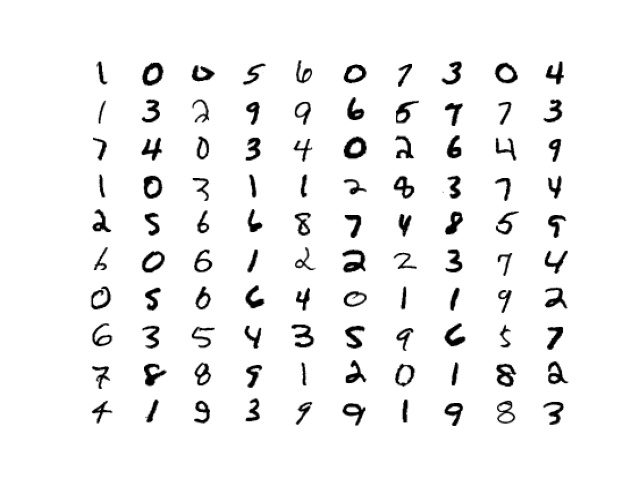 1 0 0 5 6 0 7 3 0 4
1 3 2 9 9 6 5 7 7 3
7 4 0 3 4 0 2 6 4 9
1 0 3 1 1 2 8 3 7 4
2 5 6 6 8 7 4 8 5 9
6 0 6 1 2 2 2 3 7 4
0 5 6 6 4 0 1 1 9 2
6 3 5 4 3 5 9 6 5 7
7 8 8 9 1 2 0 1 8 2
4 1 9 3 9 9 1 9 8 3